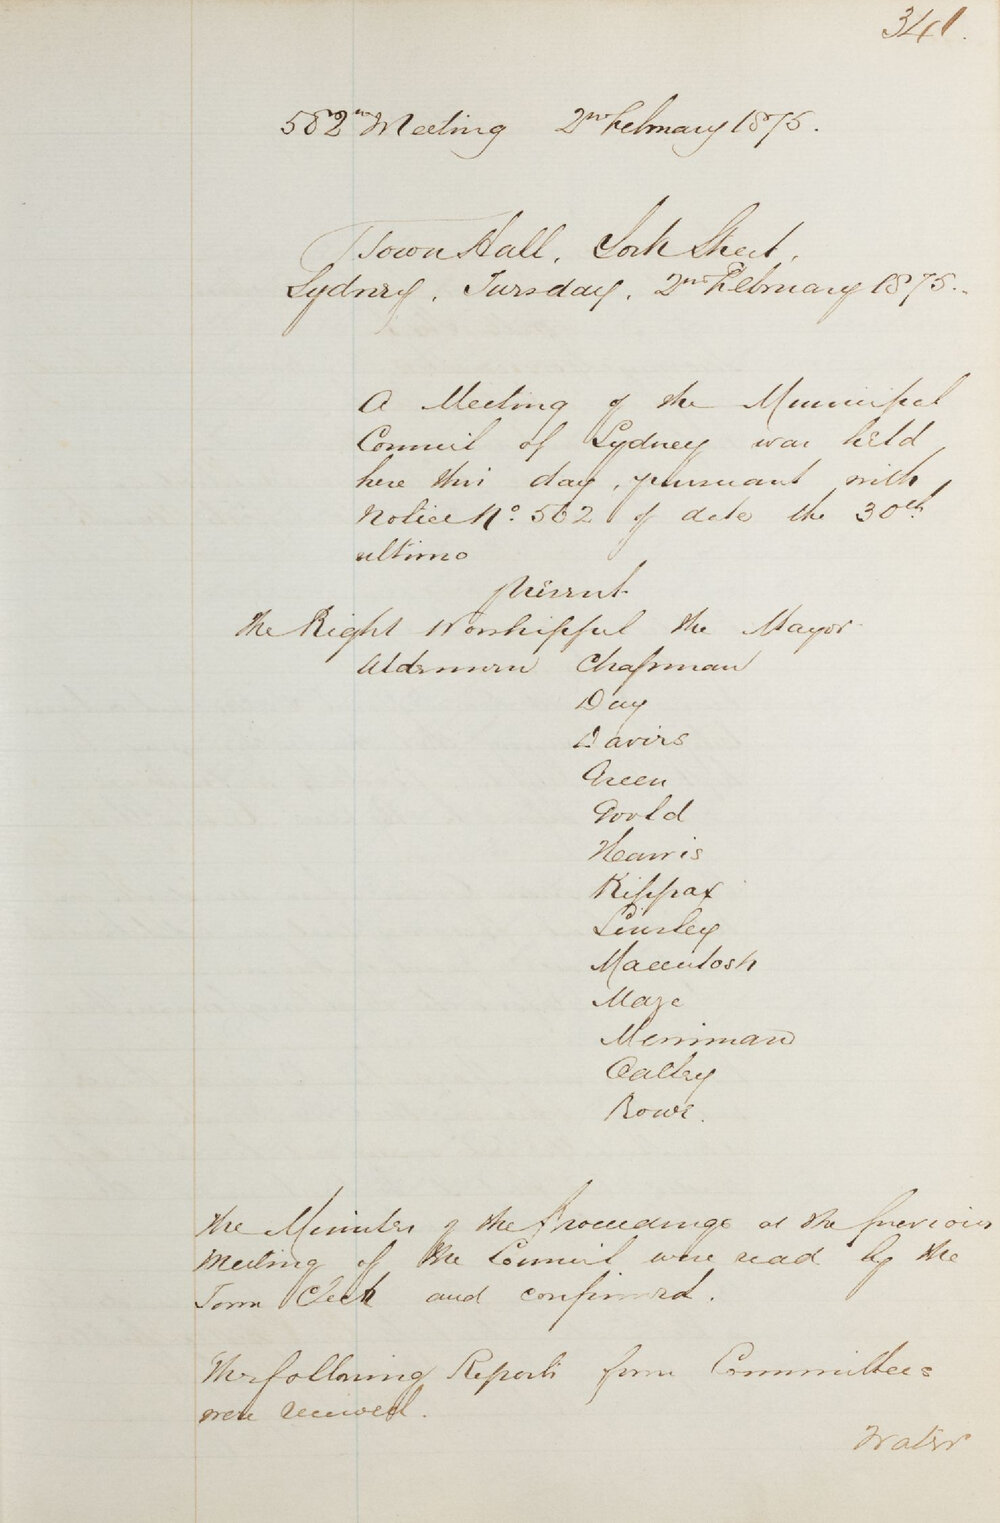 341.
562nd Meeting 2nd February 1875.
Town Hall, York Street,
Sydney, Tuesday, 2nd February 1875.
A Meeting of the Municipal
Council of Sydney was held
here this day, pursuant with
Notice No. 562 of date the 30th
ultimo
present
The Right Worshipful the Mayor
Aldermen Chapman
Day
Davies
Green
Gould
Harris
Kippax
Linsley
Macintosh
Maze
Merriman
Oatley
Rowe.
The Minutes of the Proceedings at the previous
Meeting of the Council were read by the
Town Clerk and confirmed.
The following Reports from Committees
were received.
Water